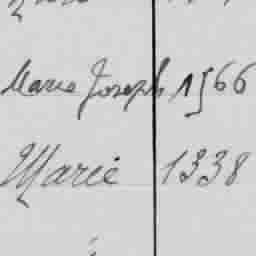 Marie Joseph 1566
Marie 1338